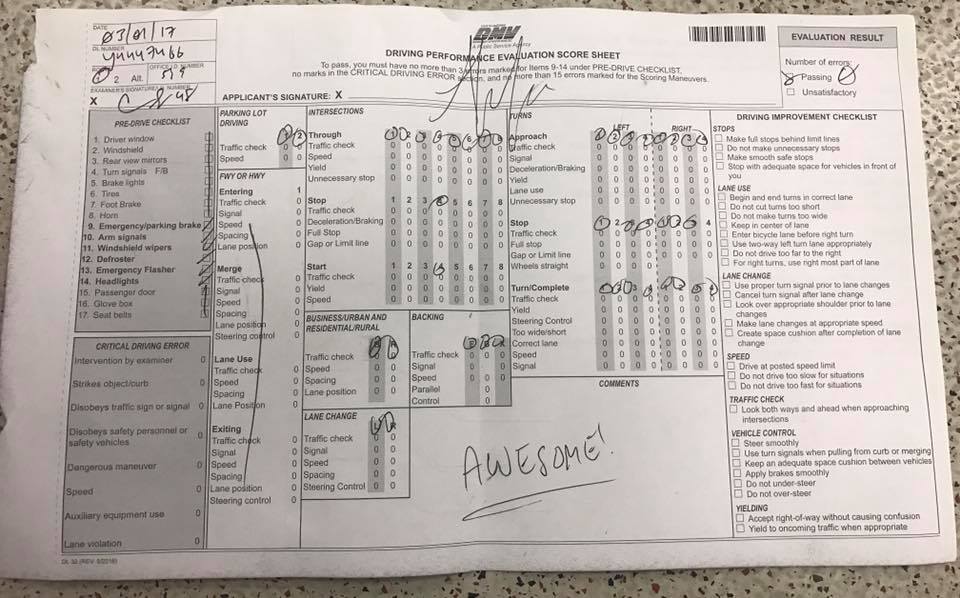 DATE
03/01/17
DL NUMBER
OFFICE I.D. NUMBER
1 2 Alt.
EXAMINER'S SIGNATURE / I.D. NUMBER
X
DMV
A Public Service Agency
DRIVING PERFORMANCE EVALUATION SCORE SHEET
To pass, you must have no more than 3 errors marked for Items 9-14 under PRE-DRIVE CHECKLIST,
no marks in the CRITICAL DRIVING ERROR section, and no more than 15 errors marked for the Scoring Maneuvers.
APPLICANT'S SIGNATURE: X
EVALUATION RESULT
Number of errors:
Passing
Unsatisfactory
PRE-DRIVE CHECKLIST
1. Driver window
2. Windshield
3. Rear view mirrors
4. Turn signals F/B
5. Brake lights
6. Tires
7. Foot Brake
8. Horn
9. Emergency/parking brake
10. Arm signals
11. Windshield wipers
12. Defroster
13. Emergency Flasher
14. Headlights
15. Passenger door
16. Glove box
17. Seat belts
CRITICAL DRIVING ERROR
Intervention by examiner 0
Strikes object/curb 0
Disobeys traffic sign or signal 0
Disobeys safety personnel or
safety vehicles 0
Dangerous maneuver 0
Speed 0
Auxiliary equipment use 0
Lane violation 0
DL 32 (REV. 6/2016)
PARKING LOT
DRIVING 1 2
Traffic check 0 0
Speed 0 0
FWY OR HWY
Entering 1
Traffic check 0
Signal 0
Speed 0
Spacing 0
Lane position 0
Merge
Traffic check 0
Signal 0
Speed 0
Spacing 0
Lane position 0
Steering control 0
Lane Use
Traffic check 0
Speed 0
Spacing 0
Lane Position 0
Exiting
Traffic check 0
Signal 0
Speed 0
Spacing 0
Lane position 0
Steering control 0
INTERSECTIONS
Through 1 2 3 4 5 6 7 8
Traffic check 0 0 0 0 0 0 0 0
Speed 0 0 0 0 0 0 0 0
Yield 0 0 0 0 0 0 0 0
Unnecessary stop 0 0 0 0 0 0 0 0
Stop 1 2 3 4 5 6 7 8
Traffic check 0 0 0 0 0 0 0 0
Deceleration/Braking 0 0 0 0 0 0 0 0
Full Stop 0 0 0 0 0 0 0 0
Gap or Limit line 0 0 0 0 0 0 0 0
Start 1 2 3 4 5 6 7 8
Traffic check 0 0 0 0 0 0 0 0
Yield 0 0 0 0 0 0 0 0
Speed 0 0 0 0 0 0 0 0
BUSINESS/URBAN AND
RESIDENTIAL/RURAL
Traffic check 0 0
Speed 0 0
Spacing 0 0
Lane position 0 0
BACKING
Traffic check 0 0 0
Signal 0 0
Speed 0 0 0
Parallel 0
Control 0
LANE CHANGE
Traffic check 0 0
Signal 0 0
Speed 0 0
Spacing 0 0
Steering Control 0 0
TURNS
LEFT RIGHT
Approach 1 2 3 4 1 2 3 4
Traffic check 0 0 0 0 0 0 0 0
Signal 0 0 0 0 0 0 0 0
Deceleration/Braking 0 0 0 0 0 0 0 0
Yield 0 0 0 0 0 0 0 0
Lane use 0 0 0 0 0 0 0 0
Unnecessary stop 0 0 0 0 0 0 0 0
Stop 1 2 3 4 1 2 3 4
Traffic check 0 0 0 0 0 0 0 0
Full stop 0 0 0 0 0 0 0 0
Gap or Limit line 0 0 0 0 0 0 0 0
Wheels straight 0 0 0 0
Turn/Complete 1 2 3 4 1 2 3 4
Traffic check 0 0 0 0 0 0 0 0
Yield 0 0 0 0 0 0 0 0
Steering Control 0 0 0 0 0 0 0 0
Too wide/short 0 0 0 0 0 0 0 0
Correct lane 0 0 0 0 0 0 0 0
Speed 0 0 0 0 0 0 0 0
Signal 0 0 0 0 0 0 0 0
COMMENTS
AWESOME!
DRIVING IMPROVEMENT CHECKLIST
STOPS
Make full stops behind limit lines
Do not make unnecessary stops
Make smooth safe stops
Stop with adequate space for vehicles in front of
you
LANE USE
Begin and end turns in correct lane
Do not cut turns too short
Do not make turns too wide
Keep in center of lane
Enter bicycle lane before right turn
Use two-way left turn lane appropriately
Do not drive too far to the right
For right turns, use right most part of lane
LANE CHANGE
Use proper turn signal prior to lane changes
Cancel turn signal after lane change
Look over appropriate shoulder prior to lane
changes
Make lane changes at appropriate speed
Create space cushion after completion of lane
change
SPEED
Drive at posted speed limit
Do not drive too slow for situations
Do not drive too fast for situations
TRAFFIC CHECK
Look both ways and ahead when approaching
intersections
VEHICLE CONTROL
Steer smoothly
Use turn signals when pulling from curb or merging
Keep an adequate space cushion between vehicles
Apply brakes smoothly
Do not under-steer
Do not over-steer
YIELDING
Accept right-of-way without causing confusion
Yield to oncoming traffic when appropriate